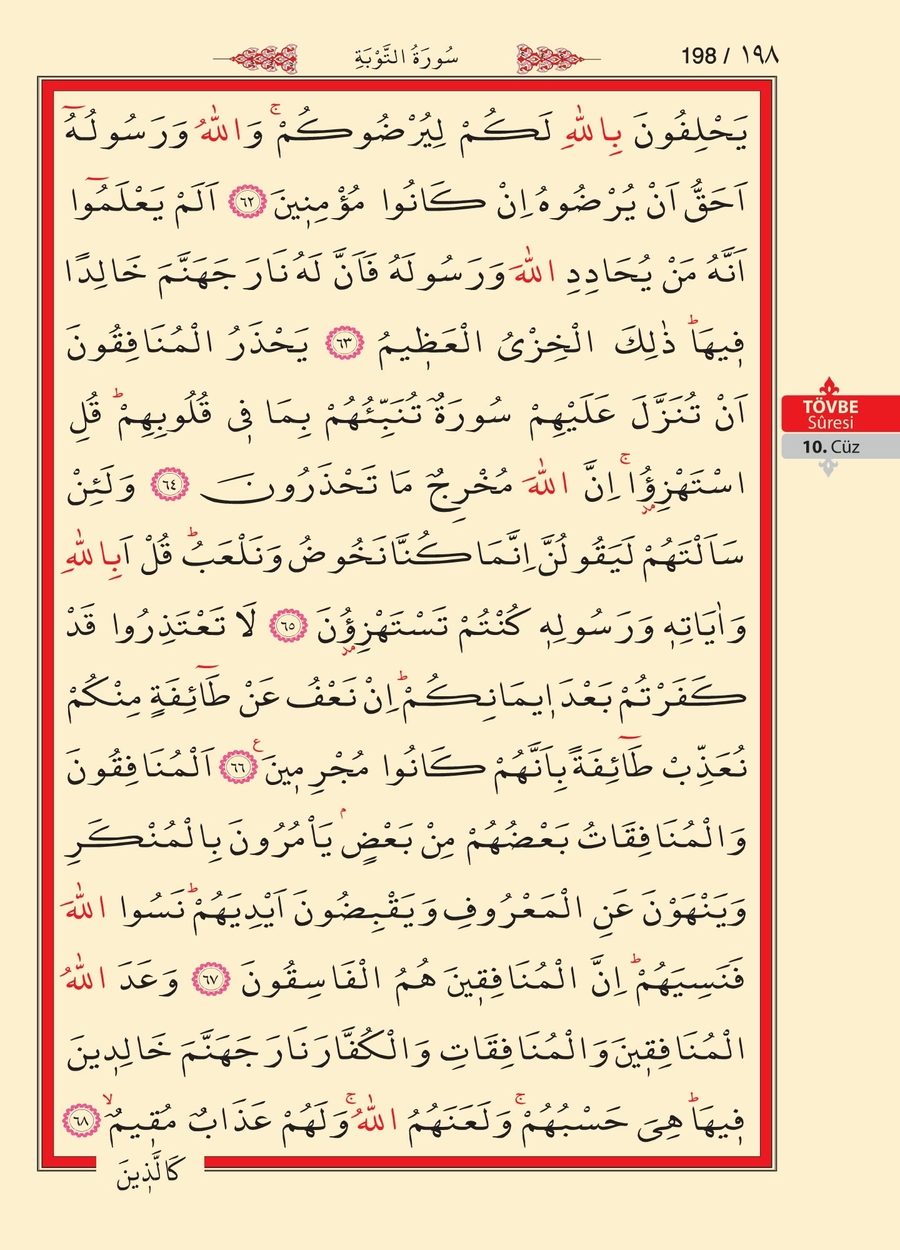 198 / ١٩٨
سُورَةُ التَّوْبَةِ
يَحْلِفُونَ بِاللّٰهِ لَكُمْ لِيُرْضُوكُمْۚ وَاللّٰهُ وَرَسُولُهُٓ
اَحَقُّ اَنْ يُرْضُوهُ اِنْ كَانُوا مُؤْمِنٖينَ ﴿٦٢﴾ اَلَمْ يَعْلَمُٓوا
اَنَّهُ مَنْ يُحَادِدِ اللّٰهَ وَرَسُولَهُ فَاَنَّ لَهُ نَارَ جَهَنَّمَ خَالِدًا
فٖيهَاۜ ذٰلِكَ الْخِزْىُ الْعَظٖيمُ ﴿٦٣﴾ يَحْذَرُ الْمُنَافِقُونَ
اَنْ تُنَزَّلَ عَلَيْهِمْ سُورَةٌ تُنَبِّئُهُمْ بِمَا فٖى قُلُوبِهِمْۜ قُلِ
اسْتَهْزِؤُ۫اۚ اِنَّ اللّٰهَ مُخْرِجٌ مَا تَحْذَرُونَ ﴿٦٤﴾ وَلَئِنْ
سَاَلْتَهُمْ لَيَقُولُنَّ اِنَّمَا كُنَّا نَخُوضُ وَنَلْعَبُۜ قُلْ اَبِاللّٰهِ
وَاٰيَاتِهٖ وَرَسُولِهٖ كُنْتُمْ تَسْتَهْزِؤُ۫نَ ﴿٦٥﴾ لَا تَعْتَذِرُوا قَدْ
كَفَرْتُمْ بَعْدَ اٖيمَانِكُمْۜ اِنْ نَعْفُ عَنْ طَٓائِفَةٍ مِنْكُمْ
نُعَذِّبْ طَٓائِفَةً بِاَنَّهُمْ كَانُوا مُجْرِمٖينَ ﴿٦٦﴾ع اَلْمُنَافِقُونَ
وَالْمُنَافِقَاتُ بَعْضُهُمْ مِنْ بَعْضٍۢ يَاْمُرُونَ بِالْمُنْكَرِ
وَيَنْهَوْنَ عَنِ الْمَعْرُوفِ وَيَقْبِضُونَ اَيْدِيَهُمْۜ نَسُوا اللّٰهَ
فَنَسِيَهُمْۜ اِنَّ الْمُنَافِقٖينَ هُمُ الْفَاسِقُونَ ﴿٦٧﴾ وَعَدَ اللّٰهُ
الْمُنَافِقٖينَ وَالْمُنَافِقَاتِ وَالْكُفَّارَ نَارَ جَهَنَّمَ خَالِدٖينَ
فٖيهَاۜ هِىَ حَسْبُهُمْۚ وَلَعَنَهُمُ اللّٰهُۚ وَلَهُمْ عَذَابٌ مُقٖيمٌۙ ﴿٦٨﴾
كَالَّذٖينَ
TÖVBE
Sûresi
10. Cüz